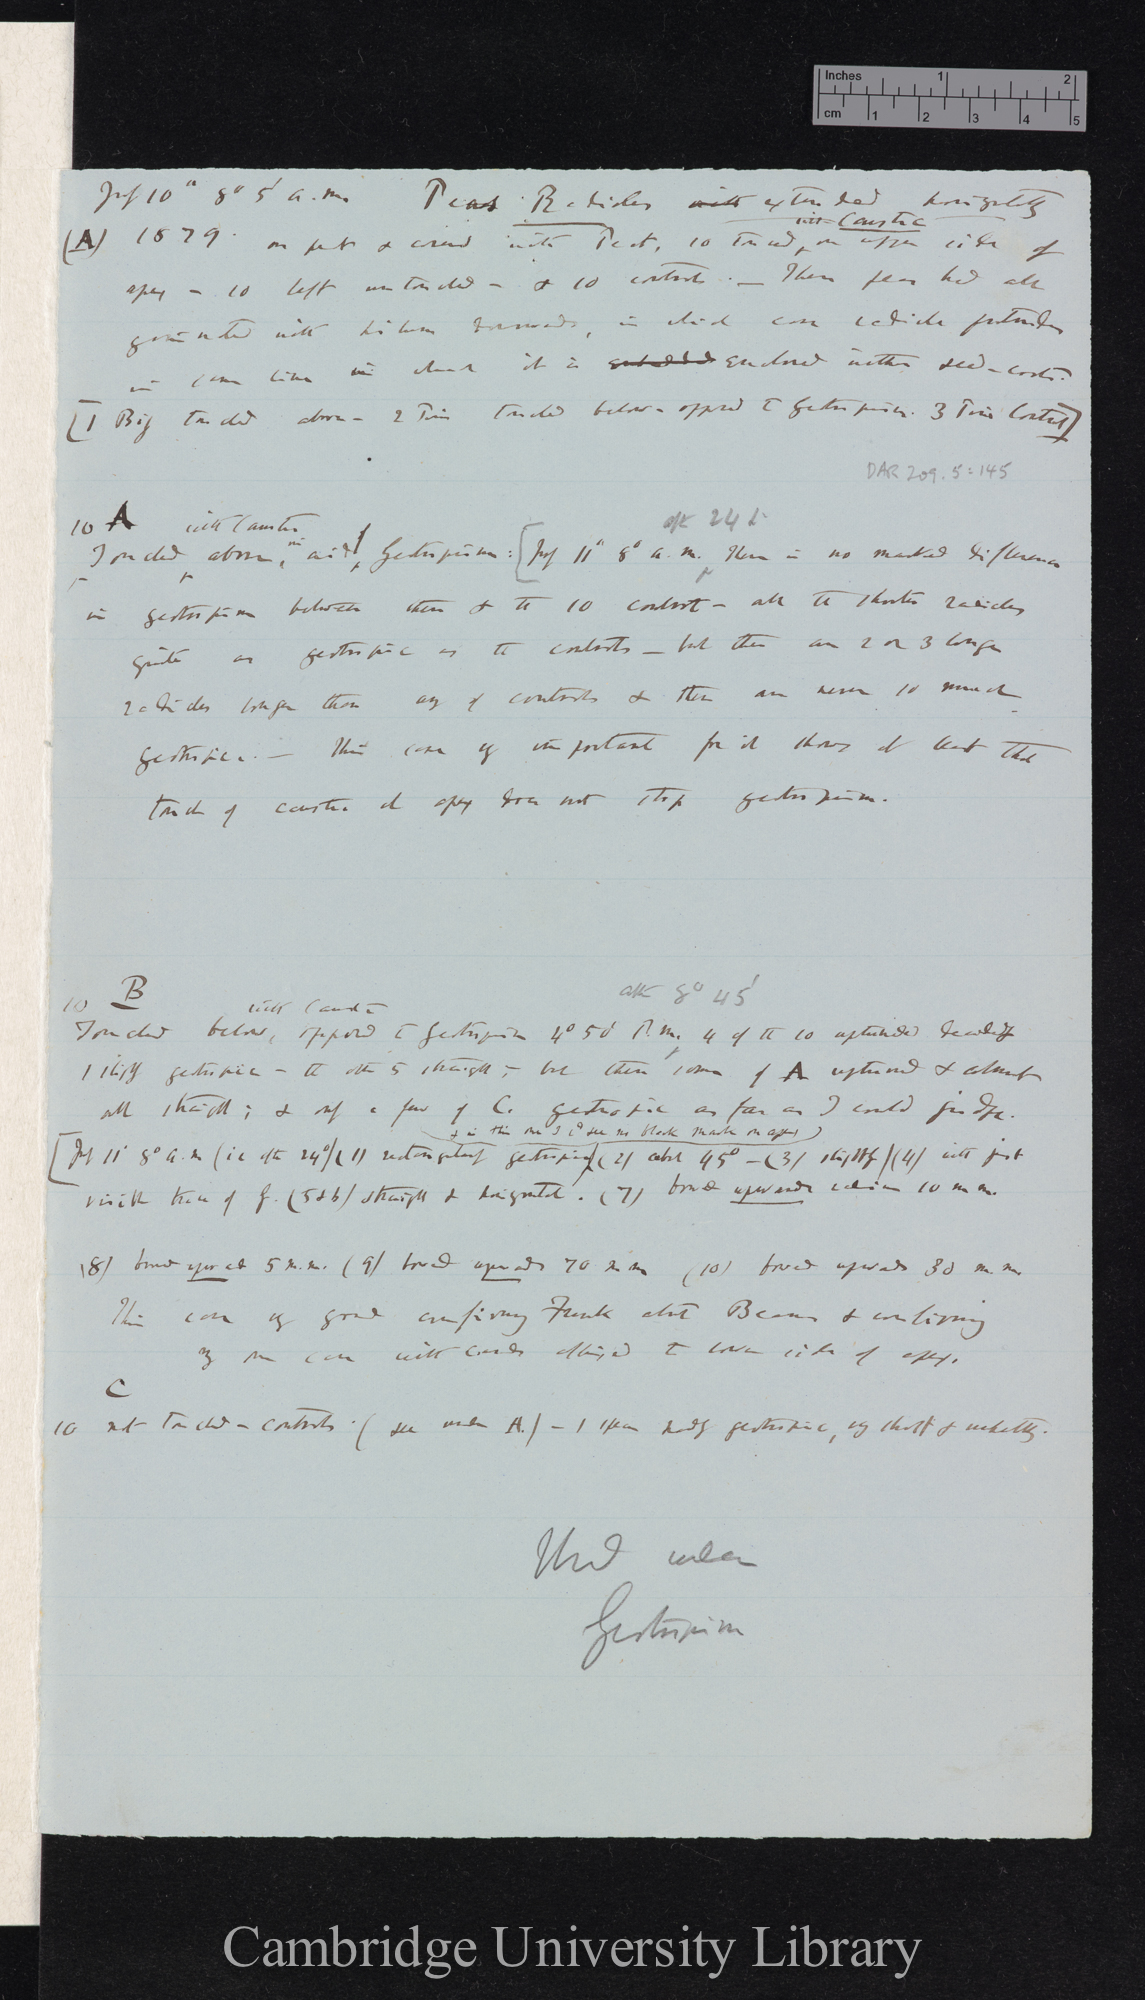 Inches 1 2
cm 1 2 3 4 5
10° 8° 5' a.m. Peas Radicles with extended horizontally
with Caustic
(A) 1879. on peat & covered with Peat, 10 touched, on upper side of
apex — 10 left untouched — & 10 controls. — These peas had all
germinated with hilum downwards, in which case radicle protrudes
in same line in which it is enclosed within seed-coats.
[1 Big touched above — 2 Tin touched below — opposed to Geotropism. 3 Tin Control]
DAR 209.5:145
10 A with Caustic after 24 h
Touched above, aid Geotropism: [ 11° 8° a.m. There is no marked difference
in geotropism between these & the 10 control — all the shorter radicles
quite as geotropic as the controls — but there are 2 or 3 longer
radicles longer than any of controls & these are never so much
geotropic. — This case is important for it shows at least that
touch of caustic at apex does not stop geotropism.
10 B with Caustic after 8° 45'
Touched below, opposed to Geotropism 4° 50' P.m. 4 of the 10 upturned decidedly
1 slightly geotropic — the other 5 straight; — but then some of A upturned & almost
all straight; & only a few of C. geotropic as far as I could judge.
& in this one I cd see no black mark on apex)
[ 11° 8° a.m (ie after 24°) (1) rectangularly geotropic (2) about 45° — (3) slightly (4) with just
visible trace of g. (5 & 6) straight & horizontal. (7) bowed upwards radius 10 m m.
(8) bowed upwards 5 m.m. (9) bowed upwards 70 m m (10) bowed upwards 30 m m
This case is good confirming about Beans & confirming
my own case with cards affixed to lower side of apex.
C
10 not touched — controls. (see under A.) — 1 geotropic,
Used under
Geotropism
Cambridge University Library